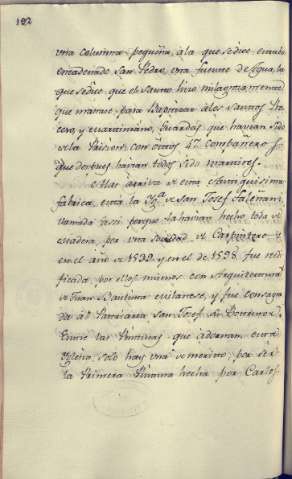 122
una columna pequeña, á la que se dice estuvo
encadenado San Pedro, una fuente de Agua, la
que se dice que el Santo hizo milagrosamente
que manase, para Baptizar á los Santos
y Guardas, que havian sido
de la Prision con otros 47 Compañeros,
que despues havian todos sido martires.
Mas arriva de esta Antiquisima
fabrica, esta la Yga. de San Josef
llamada assi porque la havian hecho toda de
madera, por una Sociedad de Carpinteros
en el año de 1539, y en el de 1598. fue reedi
ficada, por ellos mismos con Arquitectura
de Juan Bautista milanese, y fue consagra
da al Patriarca San Josef su Protector.
Entre las Pinturas que adornan esta
Yglesia, solo hay una de merito, por ser
la Primera Pintura hecha por Carlos